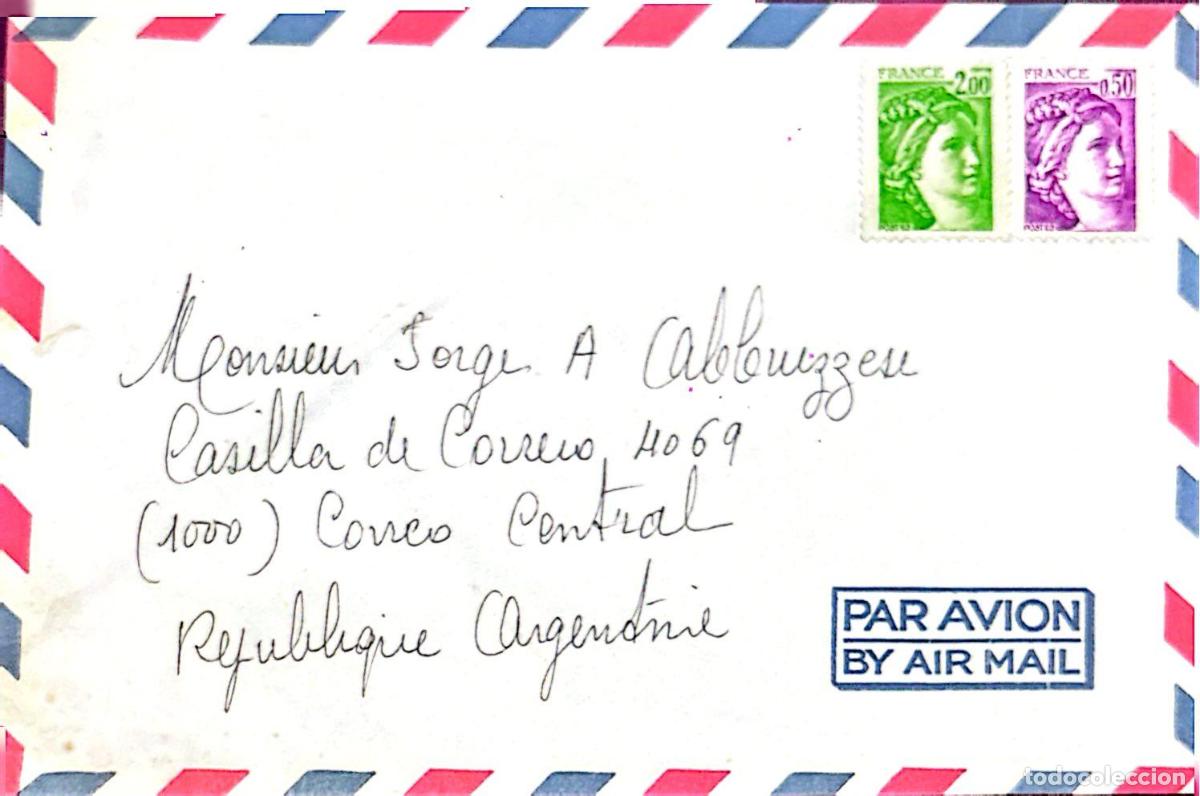 FRANCE 2.00
POSTES
FRANCE 0.50
POSTES
Monsieur Jorge A Cabbruizzese
Casilla de Correio 4069
(1000) Correo Central
Republique Argentinie
PAR AVION
BY AIR MAIL
todocoleccion